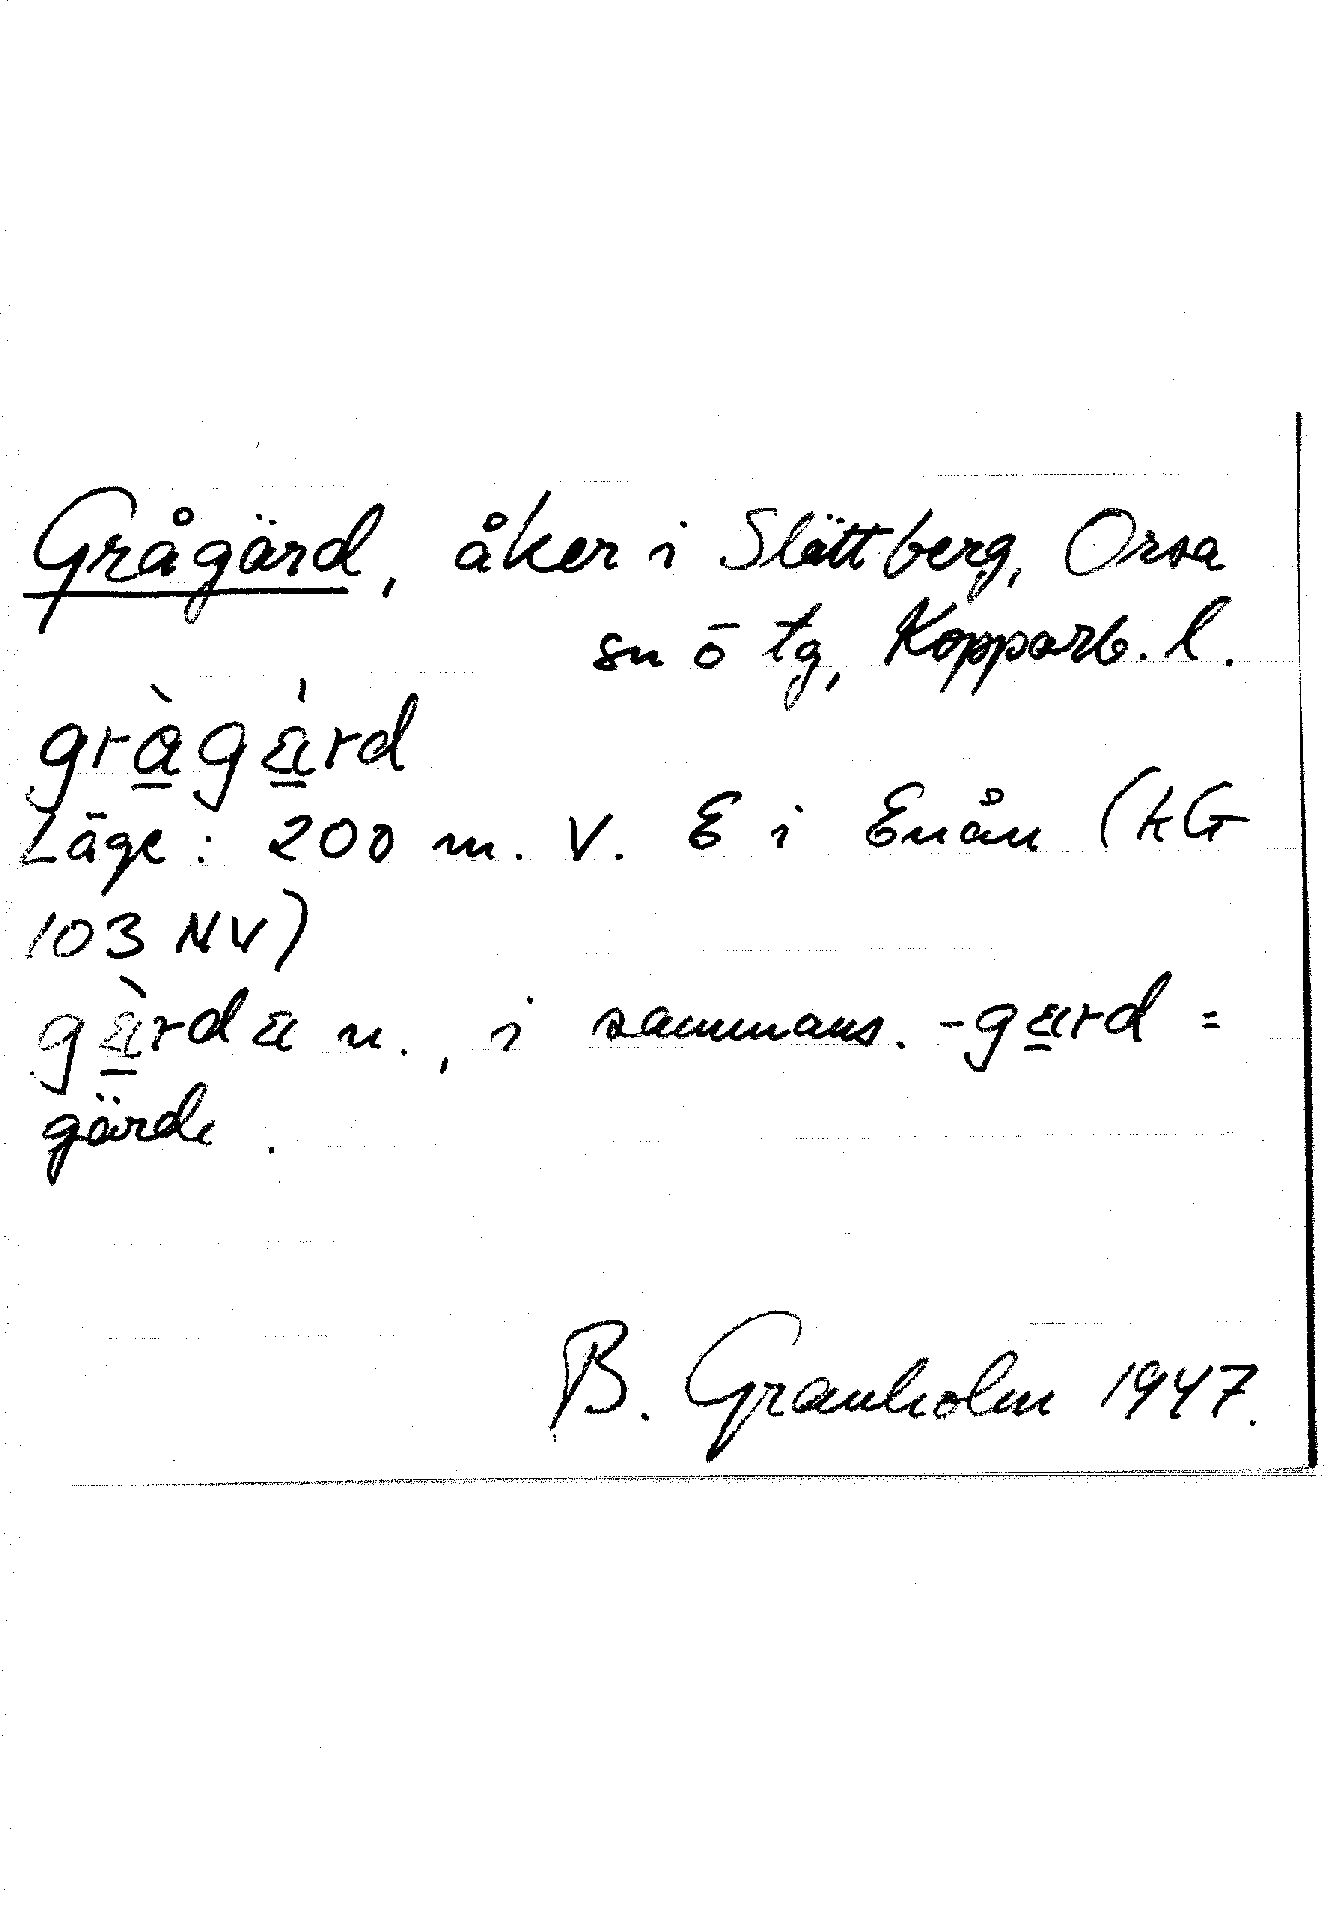 Grågärd, åker i Slättberg, Orsa
sn ō tg, Kopparb. l.
gràgä́rd
Läge: 200 m. V. E i Enån (kG
103 NV)
gæ̀rdæ n., i sammans. -gærd =
gärde.
B. Granholm 1947.